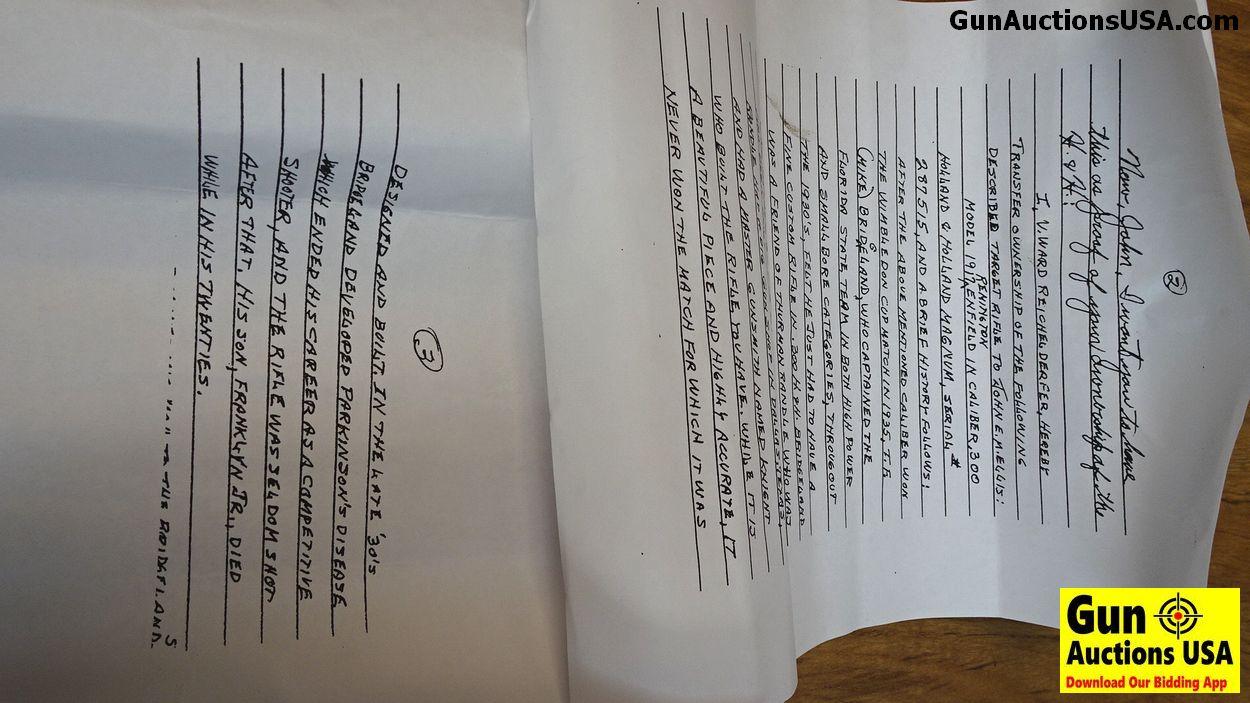 GunAuctionsUSA.com
②
Now, John, I want you to have
this as proof of your Ownership of the
H & H:
I, V. WARD REICHELDERFER, HEREBY
TRANSFER OWNERSHIP OF THE FOLLOWING
DESCRIBED TARGET RIFLE TO JOHN E.M. ELLIS:
REMINGTON
MODEL 1917 ENFIELD IN CALIBER .300
HOLLAND & HOLLAND MAGNUM, SERIAL #
287515, AND A BRIEF HISTORY FOLLOWS:
AFTER THE ABOVE MENTIONED CALIBER WON
THE WIMBLEDON CUP MATCH IN 1935, T.F.
(MIKE) BRIDGLAND, WHO CAPTAINED THE
FLORIDA STATE TEAM IN BOTH HIGH POWER
AND SMALL BORE CATEGORIES, THROUGOUT
THE 1930'S, FELT HE JUST HAD TO HAVE A
FINE CUSTOM RIFLE IN .300 H&H. BRIDGELAND
WAS A FRIEND OF THURMAN RANDLE WHO WAS
GUN SHOP IN DALLAS TEXAS,
AND HAD A MASTER GUNSMITH NAMED KNIGHT
WHO BUILT THE RIFLE YOU HAVE. WHILE IT IS
A BEAUTIFUL PIECE AND HIGHLY ACCURATE, IT
NEVER WON THE MATCH FOR WHICH IT WAS
③
DESIGNED AND BUILT. IN THE LATE '30'S
BRIDGELAND DEVELOPED PARKINSON'S DISEASE
WHICH ENDED HIS CAREER AS A COMPETITIVE
SHOOTER, AND THE RIFLE WAS SELDOM SHOT
AFTER THAT. HIS SON, FRANKLYN JR., DIED
WHILE IN HIS TWENTIES.
THE BRIDGELAND
S
Gun
Auctions USA
Download Our Bidding App